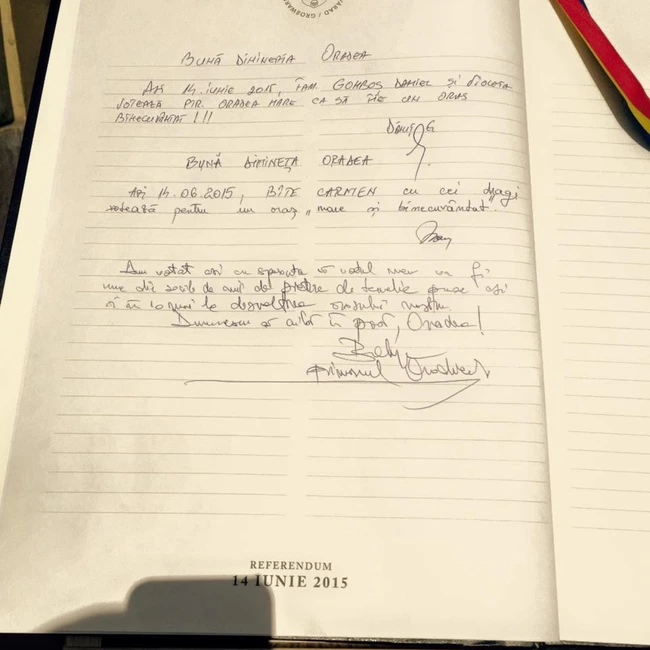 BUNĂ DIMINEȚA ORADEA
AZI 14 IUNIE 2015, FAM. GOMBOȘ DANIEL ȘI VIOLETA
VOTEAZĂ PTR. ORADEA MARE CA SĂ FIE UN ORAȘ
BINECUVÂNTAT!!!
BUNĂ DIMINEȚA ORADEA
Azi 14.06.2015, BÎTE CARMEN cu cei dragi
votează pentru un oraș „mare și binecuvântat".
Am votat azi cu speranța că votul meu va fi
una din sutele de mii de pietre de temelie puse azi
și în 10 ani la dezvoltarea orașului nostru.
Dumnezeu să aibă în pază, Oradea!
Primarul Oradiei
REFERENDUM
14 IUNIE 2015